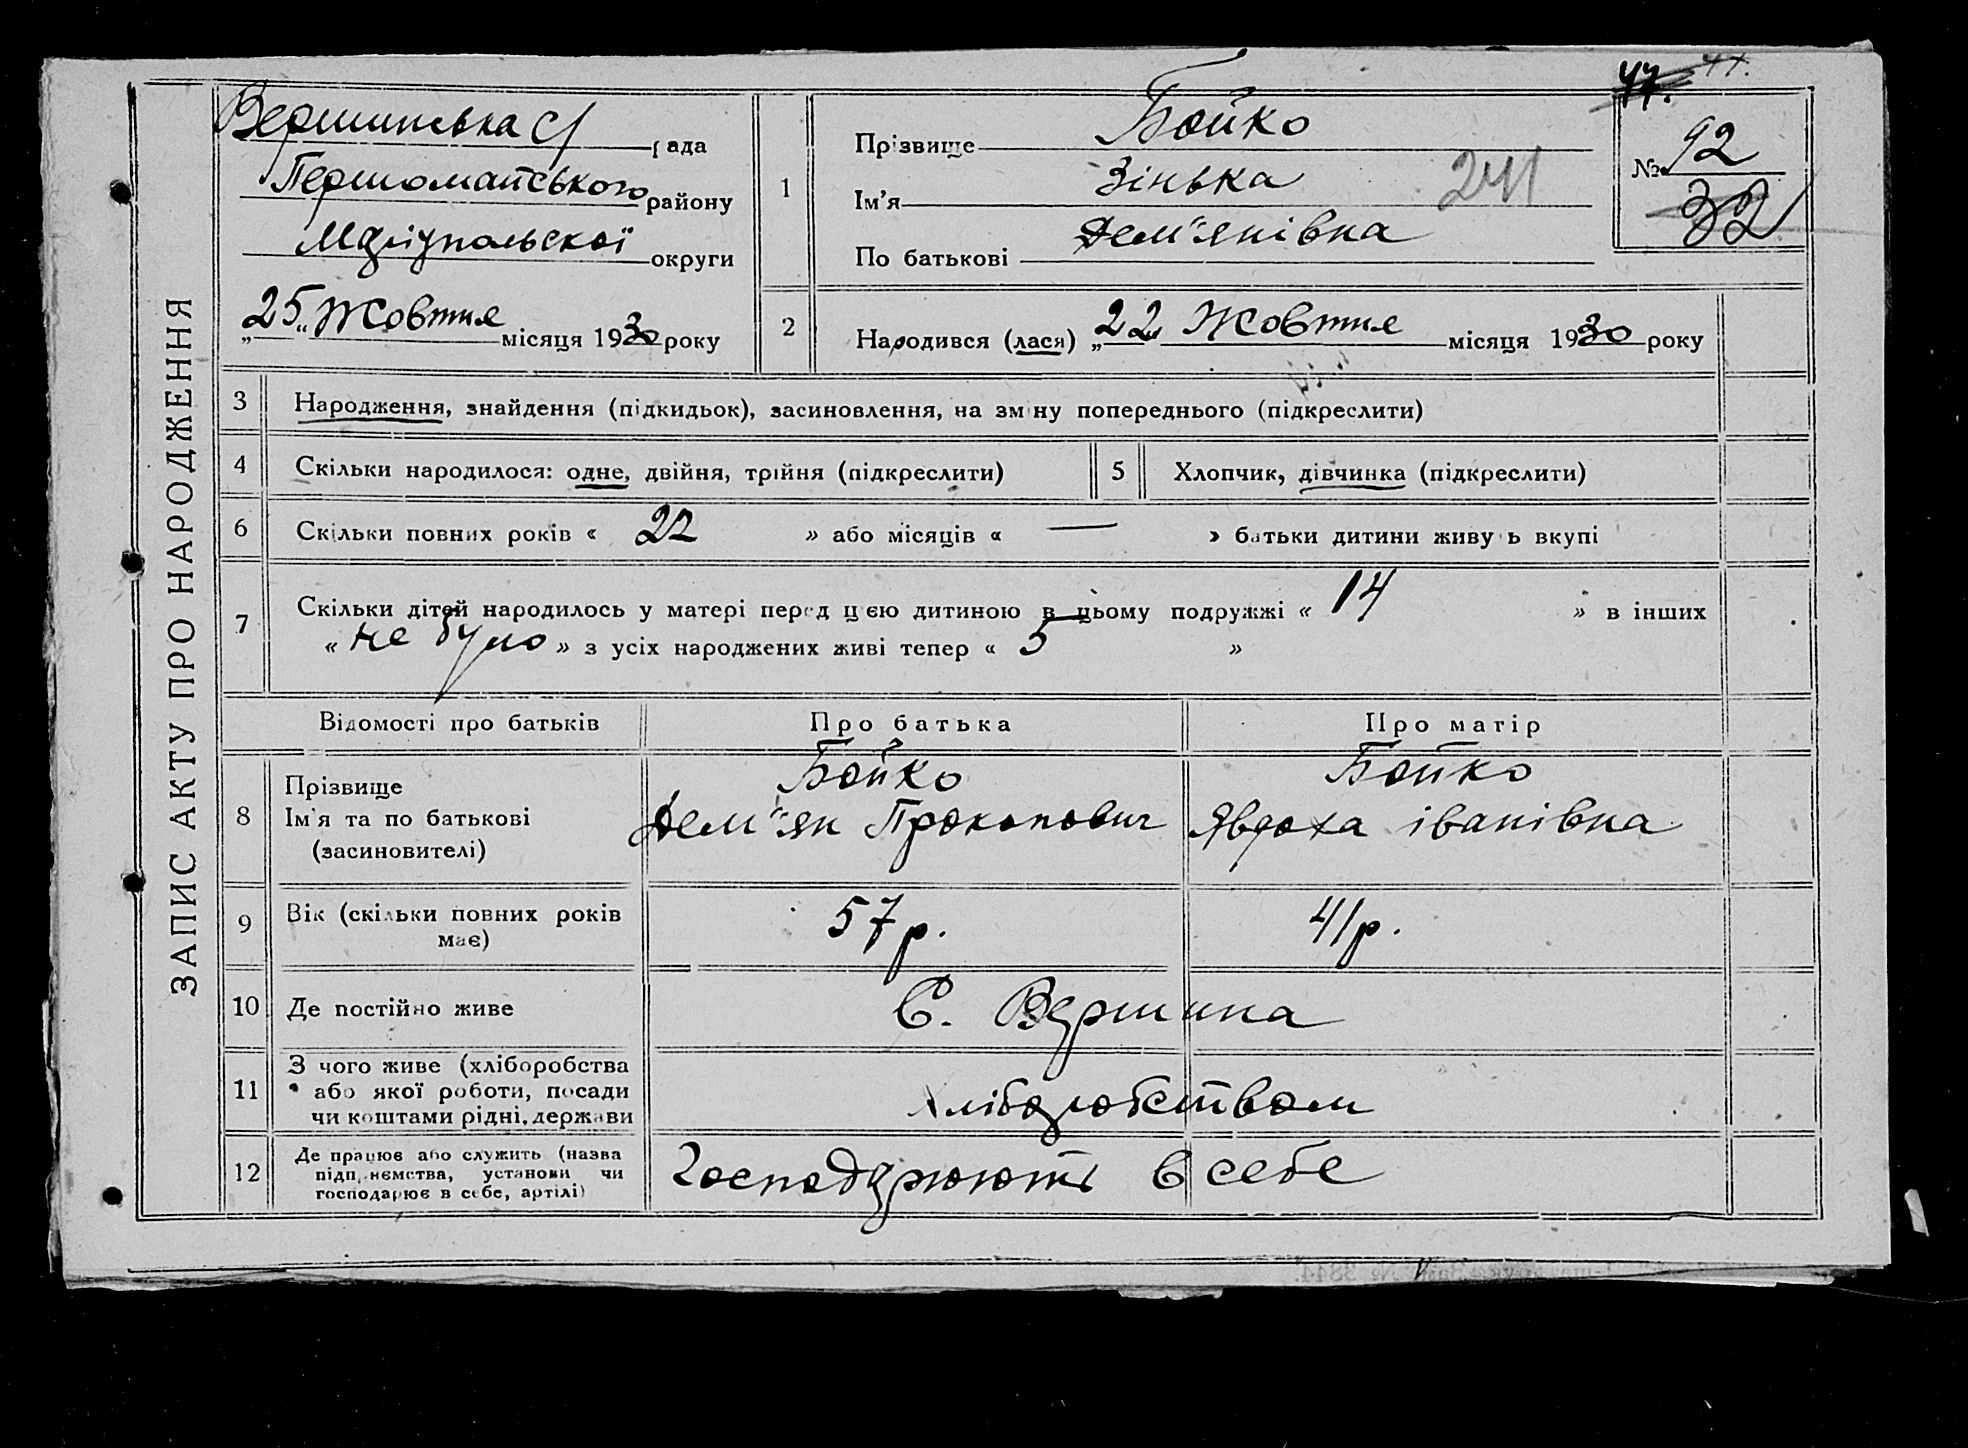 ЗАПИС АКТУ ПРО НАРОДЖЕННЯ
Вершинська с/рада
Першомайського району
Маріупольскої округи
„25" Жовтня місяця 1930 року
1
Прізвище Бойко
Ім'я Зінька
241
По батькові Дем'янівна
44.
№ 92
32
2
Народився (лася) „22" Жовтня місяця 1930 року
3 Народження, знайдення (підкидьок), засиновлення, на зміну попереднього (підкреслити)
4 Скільки народилося: одне, двійня, трійня (підкреслити)
5 Хлопчик, дівчинка (підкреслити)
6 Скільки повних років « 22 » або місяців « — » батьки дитини живуть вкупі
7 Скільки дітей народилось у матері перед цією дитиною в цьому подружжі « 14 » в інших
« не було » з усіх народжених живі тепер « 5 »
Відомості про батьків Про батька Про матір
8 Прізвище
Ім'я та по батькові
(засиновителі)
Бойко
Дем'ян Прокопович
Бойко
Явдоха іванівна
9 Вік (скільки повних років
має)
57 р.
41 р.
10 Де постійно живе
С. Вершина
11 З чого живе (хліборобства
або якої роботи, посади
чи коштами рідні, держави
хліборобством
12 Де працює або служить (назва
підприємства, установи чи
господарює в себе, артілі)
господарюють в себе